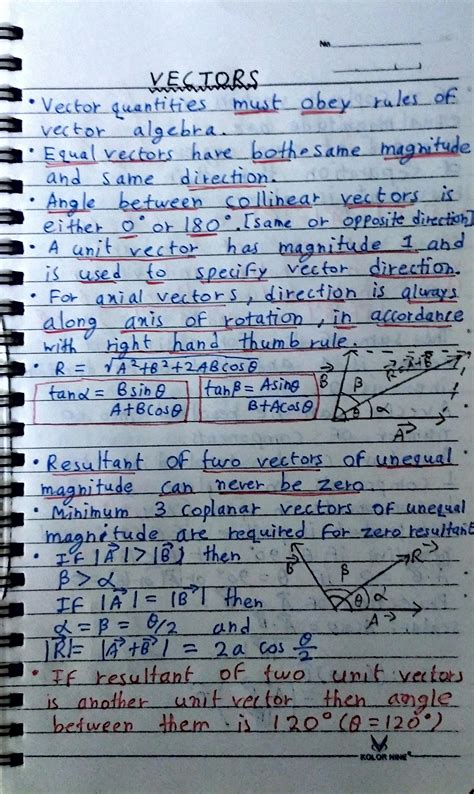 No.
VECTORS
• Vector quantities must obey rules of
vector algebra.
• Equal vectors have both same magnitude
and same direction.
• Angle between collinear vectors is
either 0° or 180°. [same or opposite direction]
• A unit vector has magnitude 1 and
is used to specify vector direction.
• For axial vectors, direction is always
along axis of rotation, in accordance
with right hand thumb rule.
• R = √A²+B²+2ABcosθ
tanα = Bsinθ / A+Bcosθ
tanβ = Asinθ / B+Acosθ
B⃗ β R⃗=A⃗+B⃗
θ α
A⃗
• Resultant of two vectors of unequal
magnitude can never be zero.
• Minimum 3 coplanar vectors of unequal
magnitude are required for zero resultant
• If |A⃗| > |B⃗| then
β > α
If |A⃗| = |B⃗| then
α = β = θ/2 and
|R⃗| = |A⃗+B⃗| = 2a cos θ/2
B⃗ β R⃗
θ α
A⃗
• If resultant of two unit vectors
is another unit vector then angle
between them is 120° (θ = 120°)
KOLOR NINE